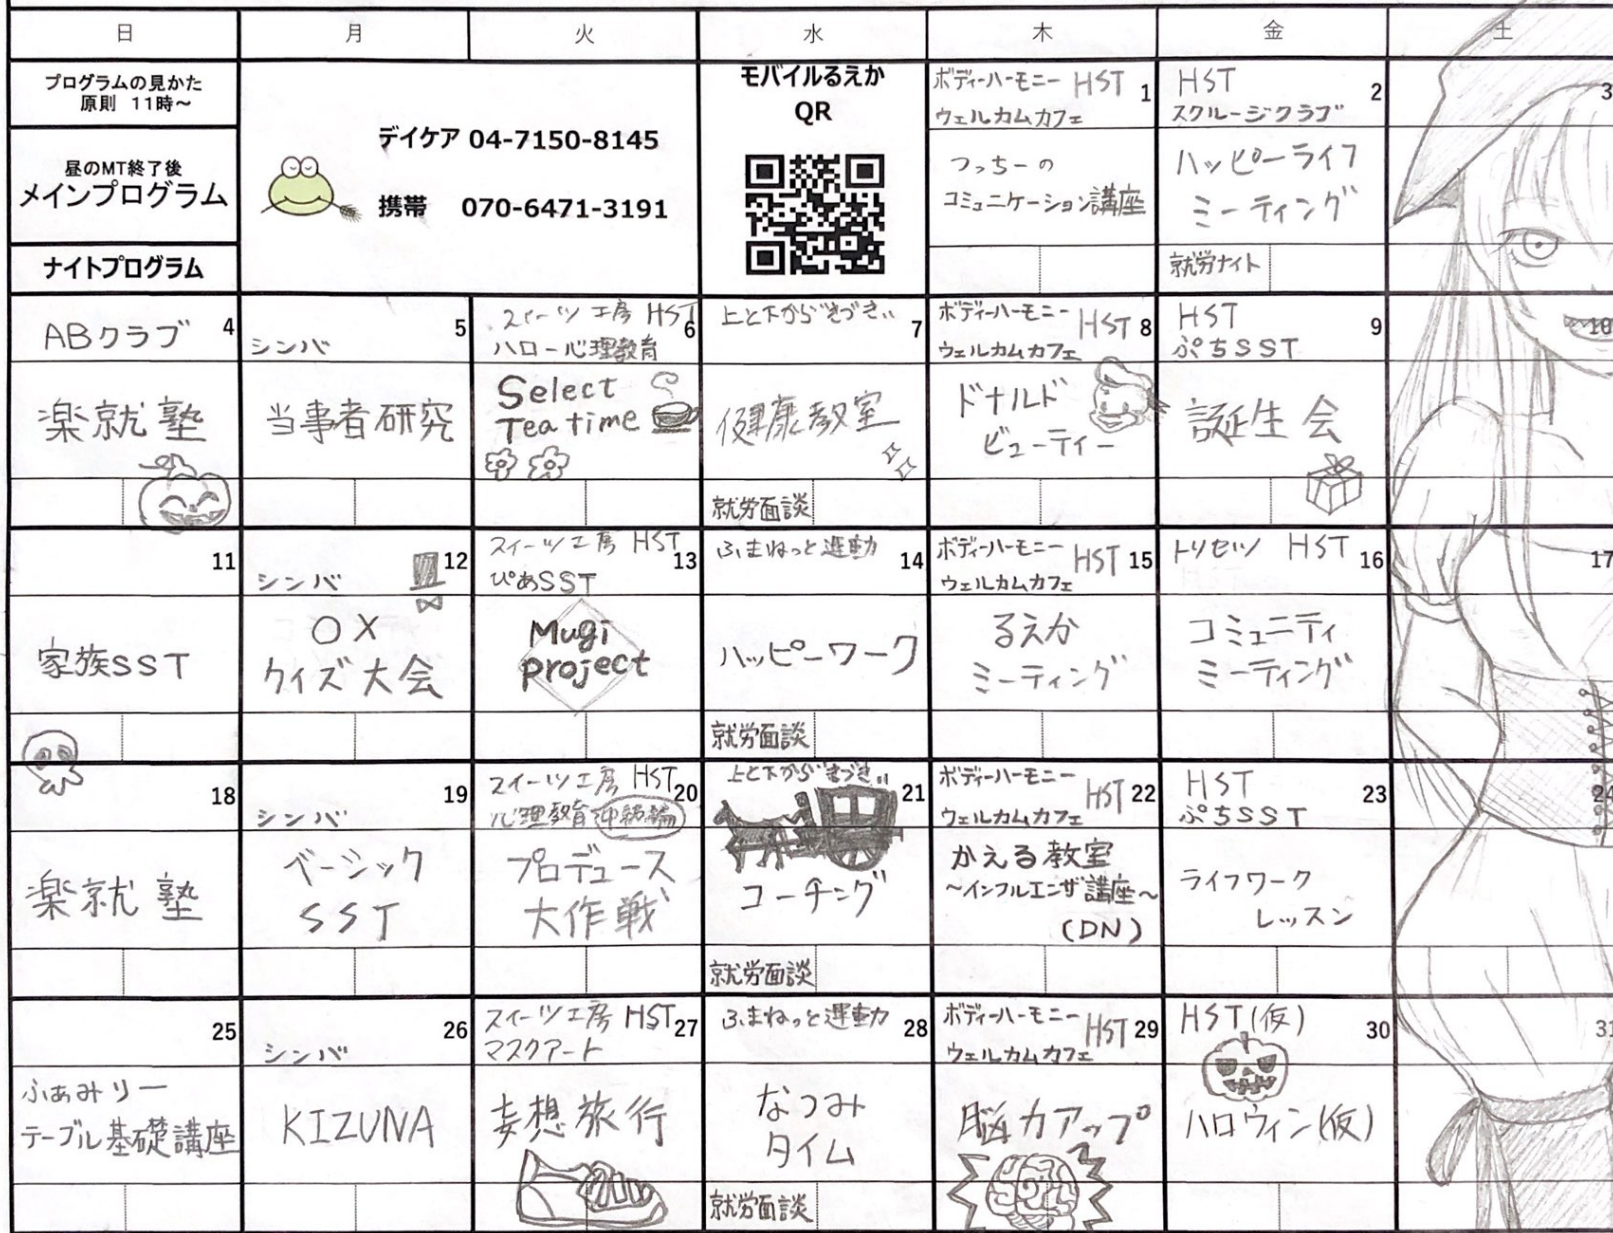 日 月 火 水 木 金 土
プログラムの見かた
原則 11時～
昼のMT終了後
メインプログラム
ナイトプログラム
デイケア 04-7150-8145
携帯 070-6471-3191
モバイルるえか
QR
ボディーハーモニー HST 1
ウェルカムカフェ
つっちーの
コミュニケーション講座
HST 2
スクルージクラブ
ハッピーライフ
ミーティング
就労ナイト
3
ABクラブ 4
楽就塾
シンバ 5
当事者研究
スイーツ工房 HST 6
ハロー心理教育
Select
Tea time
上と下から 7
健康教室
就労面談
ボディーハーモニー HST 8
ウェルカムカフェ
ドナルド
ビューティー
HST 9
ぷちSST
誕生会
10
11
家族SST
シンバ 12
○×
クイズ大会
スイーツ工房 HST 13
ぴあSST
Mugi
project
ふまねっと運動 14
ハッピーワーク
就労面談
ボディーハーモニー HST 15
ウェルカムカフェ
るえか
ミーティング
トリセツ HST 16
コミュニティ
ミーティング
17
18
楽就塾
シンバ 19
ベーシック
SST
スイーツ工房 HST 20
心理教育
プロデュース
大作戦
上と下から 21
コーチング
就労面談
ボディーハーモニー HST 22
ウェルカムカフェ
かえる教室
～インフルエンザ講座～
(DN)
HST 23
ぷちSST
ライフワーク
レッスン
24
25
ふぁみりー
テーブル基礎講座
シンバ 26
KIZUNA
スイーツ工房 HST 27
マスクアート
妄想旅行
ふまねっと運動 28
なつみ
タイム
就労面談
ボディーハーモニー HST 29
ウェルカムカフェ
脳力アップ
HST(仮) 30
ハロウィン(仮)
31